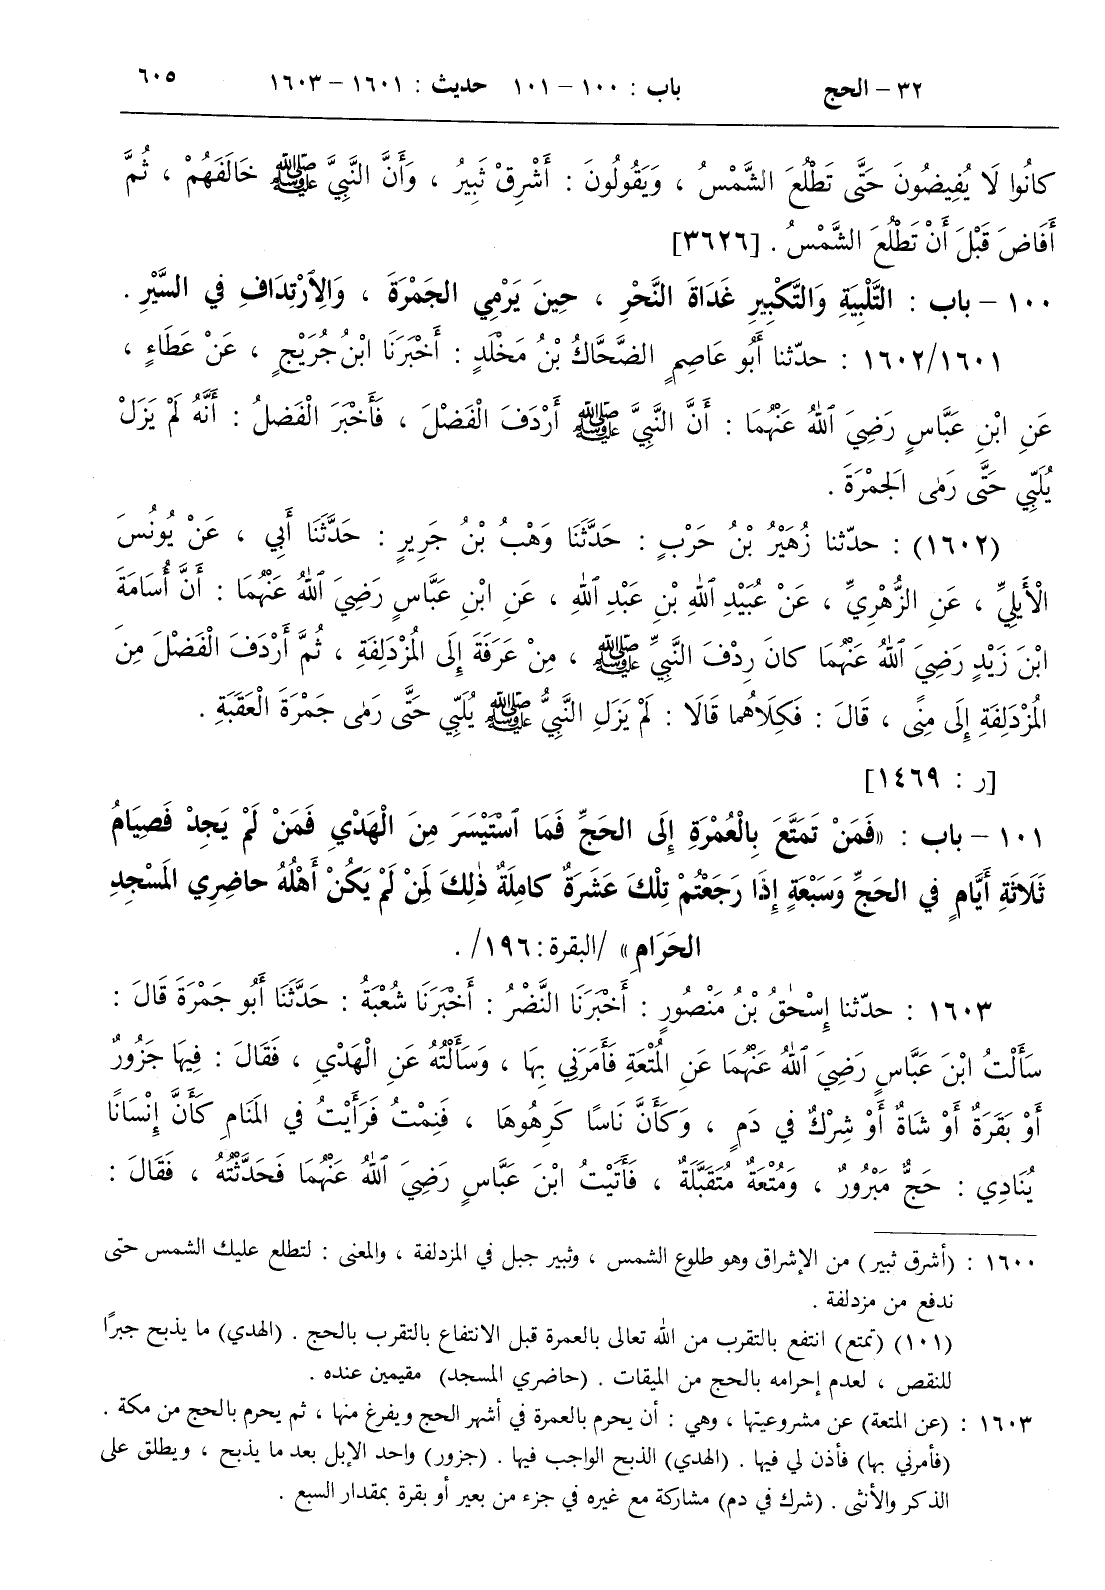 ٣٢ – الحج باب : ١٠٠ – ١٠١ حديث : ١٦٠١ – ١٦٠٣ ٦٠٥
كانُوا لَا يُفِيضُونَ حَتَّى تَطْلُعَ الشَّمْسُ ، وَيَقُولُونَ : أَشْرِقْ ثَبِيرُ ، وَأَنَّ النَّبِيَّ ﷺ خَالَفَهُمْ ، ثُمَّ
أَفَاضَ قَبْلَ أَنْ تَطْلُعَ الشَّمْسُ . [٣٦٢٦]
١٠٠ – باب : التَّلْبِيَةِ وَالتَّكْبِيرِ غَدَاةَ النَّحْرِ ، حِينَ يَرْمِي الجَمْرَةَ ، وَالِارْتِدَافِ في السَّيْرِ .
١٦٠٢/١٦٠١ : حدّثنا أَبُو عَاصِمٍ الضَّحَّاكُ بْنُ مَخْلَدٍ : أَخْبَرَنَا ابْنُ جُرَيْجٍ ، عَنْ عَطَاءٍ ،
عَنِ ابْنِ عَبَّاسٍ رَضِيَ ٱللهُ عَنْهُمَا : أَنَّ النَّبِيَّ ﷺ أَرْدَفَ الْفَضْلَ ، فَأَخْبَرَ الْفَضلُ : أَنَّهُ لَمْ يَزَلْ
يُلَبِّي حَتَّى رَمٰى الجَمْرَةَ .
(١٦٠٢) : حدّثنا زُهَيْرُ بْنُ حَرْبٍ : حَدَّثَنَا وَهْبُ بْنُ جَرِيرٍ : حَدَّثَنَا أَبِي ، عَنْ يُونُسَ
الْأَيلِيِّ ، عَنِ الزُّهْرِيِّ ، عَنْ عُبَيْدِ ٱللهِ بْنِ عَبْدِ ٱللهِ ، عَنِ ابْنِ عَبَّاسٍ رَضِيَ ٱللهُ عَنْهُمَا : أَنَّ أُسَامَةَ
ابْنَ زَيْدٍ رَضِيَ ٱللهُ عَنْهُمَا كانَ رِدْفَ النَّبِيِّ ﷺ ، مِنْ عَرَفَةَ إِلَى المُزْدَلِفَةِ ، ثُمَّ أَرْدَفَ الْفَضْلَ مِنَ
المُزْدَلِفَةِ إِلَى مِنًى ، قَالَ : فَكِلَاهُما قَالَا : لَمْ يَزَلِ النَّبِيُّ ﷺ يُلَبِّي حَتَّى رَمٰى جَمْرَةَ الْعَقَبَةِ .
[ر : ١٤٦٩]
١٠١ – باب : «فَمَنْ تَمَتَّعَ بِالْعُمْرَةِ إِلَى الحَجِّ فَمَا ٱسْتَيْسَرَ مِنَ الْهَدْيِ فَمَنْ لَمْ يَجِدْ فَصِيَامُ
ثَلَاثَةِ أَيَّامٍ في الحَجِّ وَسَبْعَةٍ إِذَا رَجَعْتُمْ تِلْكَ عَشَرَةٌ كامِلَةٌ ذٰلِكَ لِمَنْ لَمْ يَكُنْ أَهْلُهُ حاضِرِي المَسْجِدِ
الحَرَامِ» /البقرة: ١٩٦/ .
١٦٠٣ : حدّثنا إِسْحٰقُ بْنُ مَنْصُورٍ : أَخْبَرَنَا النَّضْرُ : أَخْبَرَنَا شُعْبَةُ : حَدَّثَنَا أَبُو جَمْرَةَ قالَ :
سَأَلْتُ ابْنَ عَبَّاسٍ رَضِيَ ٱللهُ عَنْهُمَا عَنِ المُتْعَةِ فَأَمَرَنِي بِهَا ، وَسَأَلْتُهُ عَنِ الْهَدْيِ ، فَقَالَ : فِيهَا جَزُورٌ
أَوْ بَقَرَةٌ أَوْ شَاةٌ أَوْ شِرْكٌ في دَمٍ ، وَكَأَنَّ نَاسًا كَرِهُوهَا ، فَنِمْتُ فَرَأَيْتُ في المَنَامِ كَأَنَّ إِنْسَانًا
يُنَادِي : حَجٌّ مَبْرُورٌ ، وَمُتْعَةٌ مُتَقَبَّلَةٌ ، فَأَتَيْتُ ابْنَ عَبَّاسٍ رَضِيَ ٱللهُ عَنْهُمَا فَحَدَّثْتُهُ ، فَقَالَ :
١٦٠٠ : (أشرق ثبير) من الإشراق وهو طلوع الشمس ، وثبير جبل في المزدلفة ، والمعنى : لتطلع عليك الشمس حتى
ندفع من مزدلفة .
(١٠١) (تمتع) انتفع بالتقرب من الله تعالى بالعمرة قبل الانتفاع بالتقرب بالحج . (الهدي) ما يذبح جبرًا
للنقص ، لعدم إحرامه بالحج من الميقات . (حاضري المسجد) مقيمين عنده .
١٦٠٣ : (عن المتعة) عن مشروعيتها ، وهي : أن يحرم بالعمرة في أشهر الحج ويفرغ منها ، ثم يحرم بالحج من مكة .
(فأمرني بها) فأذن لي فيها . (الهدي) الذبح الواجب فيها . (جزور) واحد الإبل بعد ما يذبح ، ويطلق على
الذكر والأنثى . (شرك في دم) مشاركة مع غيره في جزء من بعير أو بقرة بمقدار السبع .